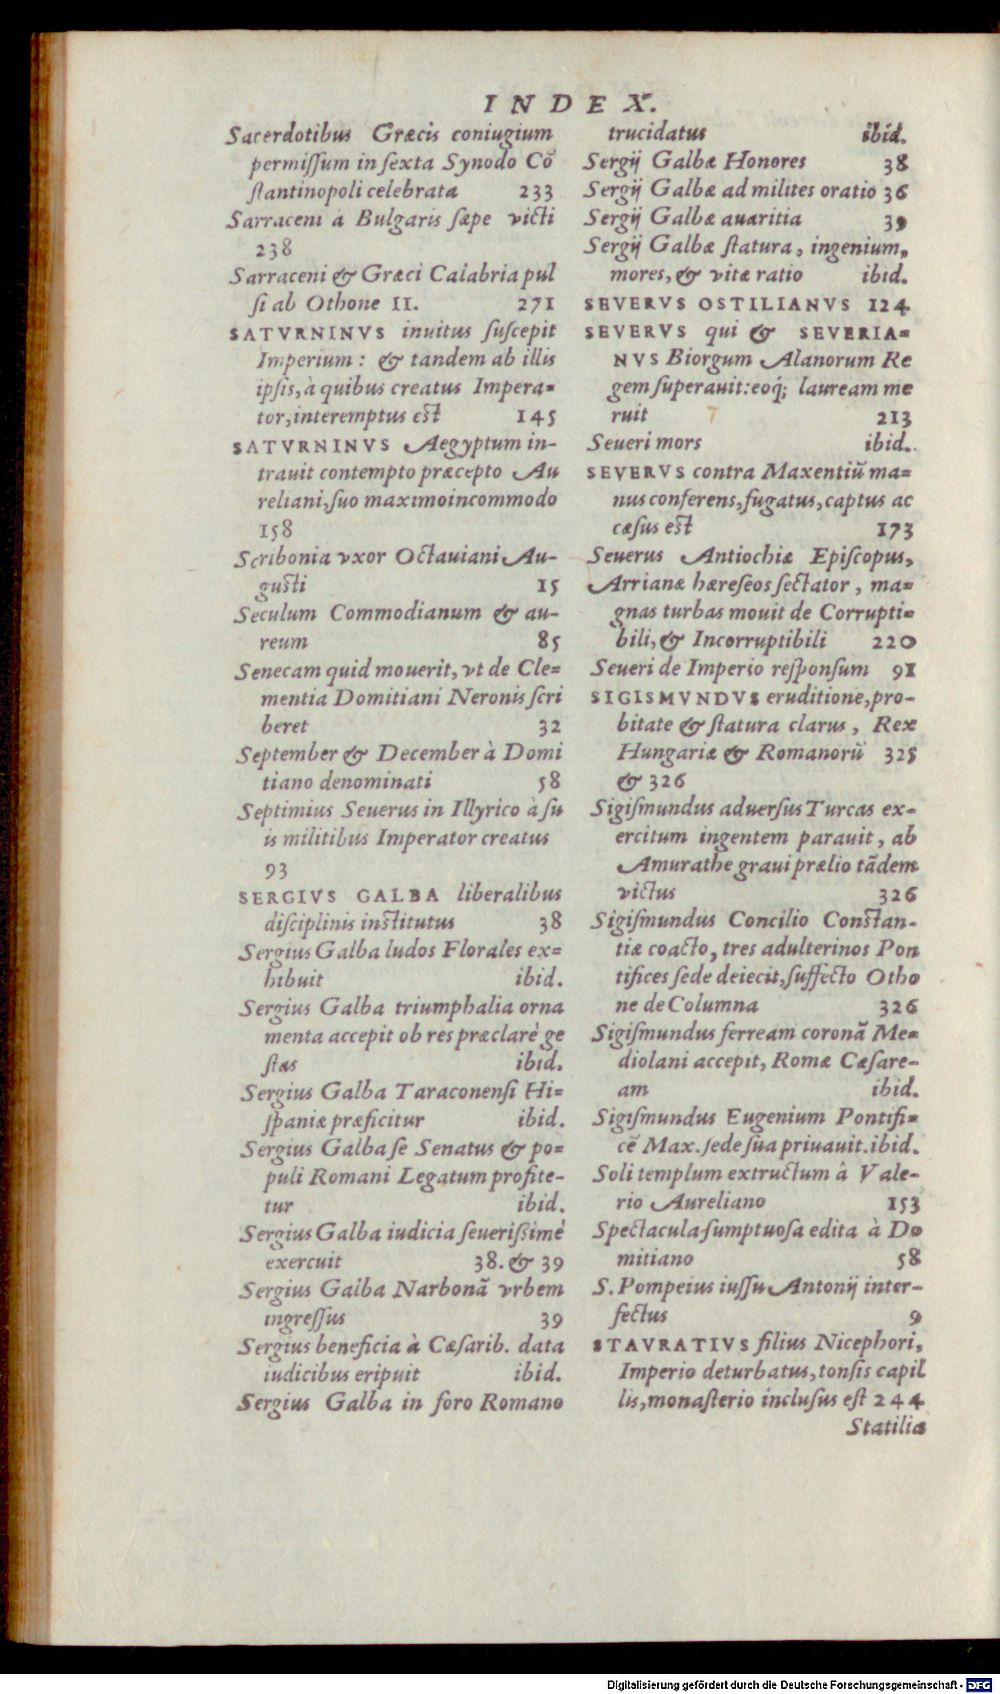 INDEX.
Sacerdotibus Græcis coniugium
permiſſum in ſexta Synodo Cō
ſtantinopoli celebrata 233
Sarraceni a Bulgaris ſæpe victi
238
Sarraceni & Græci Calabria pul
ſi ab Othone II. 271
SATVRNINVS inuitus ſuſcepit
Imperium: & tandem ab illis
ipſis, à quibus creatus Impera=
tor, interemptus eſt 145
SATVRNINVS Aegyptum in-
trauit contempto præcepto Au
reliani, ſuo maximo incommodo
158
Scribonia vxor Octauiani Au-
guſti 15
Seculum Commodianum & au-
reum 85
Senecam quid mouerit, vt de Cle=
mentia Domitiani Neronis ſcri
beret 32
September & December à Domi
tiano denominati 58
Septimius Seuerus in Illyrico à ſu
is militibus Imperator creatus
93
SERGIVS GALBA liberalibus
diſciplinis inſtitutus 38
Sergius Galba ludos Florales ex=
hibuit ibid.
Sergius Galba triumphalia orna
menta accepit ob res præclarè ge
ſtas ibid.
Sergius Galba Taraconenſi Hi=
ſpaniæ præficitur ibid.
Sergius Galba ſe Senatus & po=
puli Romani Legatum profite-
tur ibid.
Sergius Galba iudicia ſeueriſsimè
exercuit 38. & 39
Sergius Galba Narbonā vrbem
ingreſſus 39
Sergius beneficia à Cæſarib. data
iudicibus eripuit ibid.
Sergius Galba in foro Romano
trucidatus ibid.
Sergij Galbæ Honores 38
Sergij Galbæ ad milites oratio 36
Sergij Galbæ auaritia 39
Sergij Galbæ ſtatura, ingenium,
mores, & vitæ ratio ibid.
SEVERVS OSTILIANVS 124
SEVERVS qui & SEVERIA=
NVS Biorgum Alanorum Re
gem ſuperauit: eoq́; lauream me
ruit 213
Seueri mors ibid.
SEVERVS contra Maxentiū ma=
nus conferens, fugatus, captus ac
cæſus eſt 173
Seuerus Antiochiæ Epiſcopus,
Arrianæ hæreſeos ſectator, ma=
gnas turbas mouit de Corrupti=
bili, & Incorruptibili 220
Seueri de Imperio reſponſum 91
SIGISMVNDVS eruditione, pro-
bitate & ſtatura clarus, Rex
Hungariæ & Romanorū 325
& 326
Sigiſmundus aduerſus Turcas ex-
ercitum ingentem parauit, ab
Amurathe graui prælio tādem
victus 326
Sigiſmundus Concilio Conſtan-
tiæ coacto, tres adulterinos Pon
tifices ſede deiecit, ſuffecto Otho
ne de Columna 326
Sigiſmundus ferream coronā Me=
diolani accepit, Romæ Cæſare-
am ibid.
Sigiſmundus Eugenium Pontifi=
cē Max. ſede ſua priuauit. ibid.
Soli templum extructum à Vale-
rio Aureliano 153
Spectacula ſumptuoſa edita à Do
mitiano 58
S. Pompeius iuſſu Antonij inter-
fectus 9
STAVRATIVS filius Nicephori,
Imperio deturbatus, tonſis capil
lis, monaſterio incluſus eſt 244
Statilia
Digitalisierung gefördert durch die Deutsche Forschungsgemeinschaft - DFG